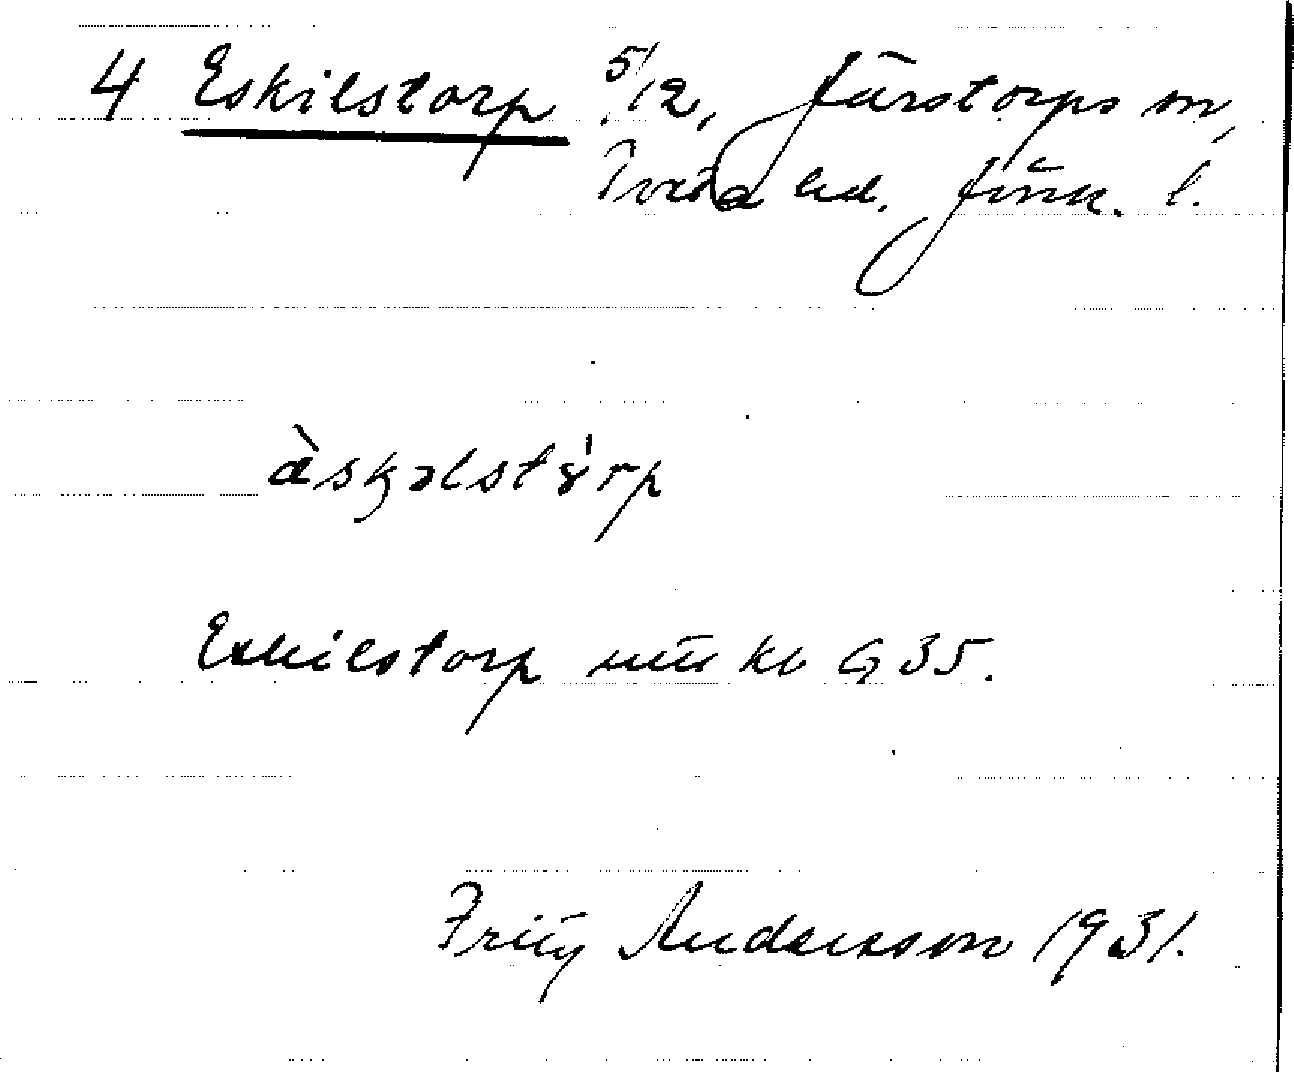 4 Eskilstorp 5/12, Järstorps sn,
Tveta hd. Jönk. l.
àskəlstórp
Eskilstorp
Fritz Andersson 1931.